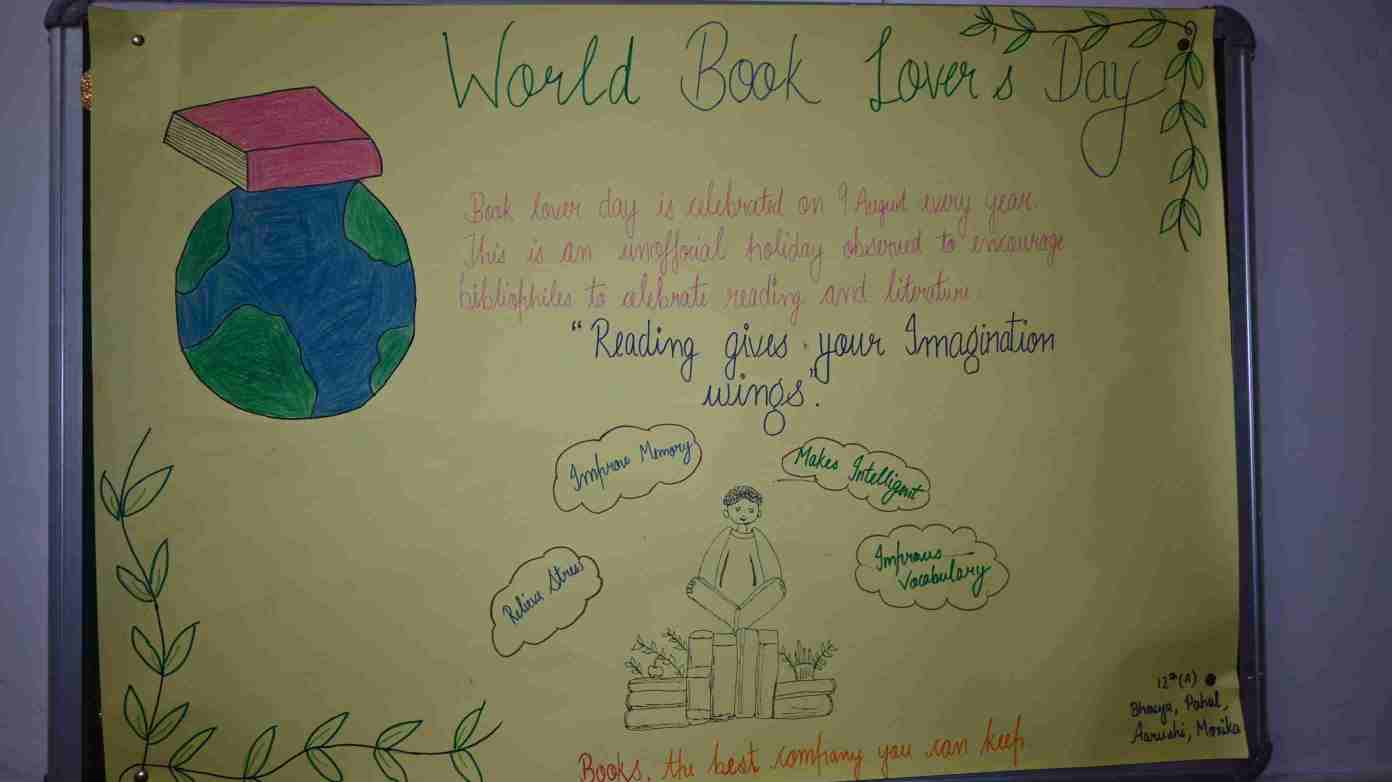 World Book Lover's Day
Book lover day is celebrated on 9 August every year.
This is an unofficial holiday observed to encourage
bibliophiles to celebrate reading and literature.
"Reading gives your Imagination
wings".
Improve Memory
Makes Intelligent
Relieve Stress
Improves
Vocabulary
12th (A)
Bhavya, Pahal,
Aarushi, Monika
Books, the best company you can keep